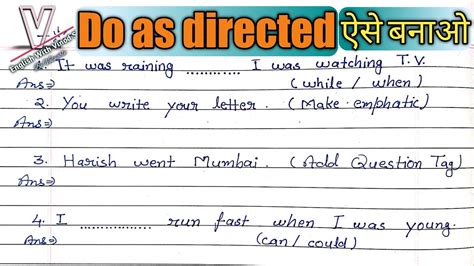 Do as directed ऐसे बनाओ
English With Vinod's
It was raining .......... I was watching T.V.
Ans⇒ (while / when)
2. You write your letter. (Make emphatic)
Ans⇒
3. Harish went Mumbai. (Add Question Tag)
Ans⇒
4. I .............. run fast when I was young.
Ans⇒ (can / could)